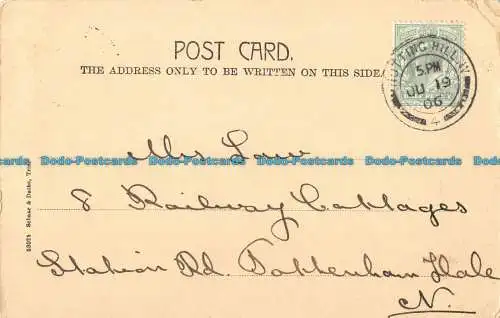 POST CARD.
THE ADDRESS ONLY TO BE WRITTEN ON THIS SIDE
NOTTING HILL
5.PM
JU 19
06
4
Dodo-Postcards Dodo-Postcards Dodo-Postcards Dodo-Postcards
Mrs Law
8 Railway Cottages
Station Rd. Tottenham Hale
N.